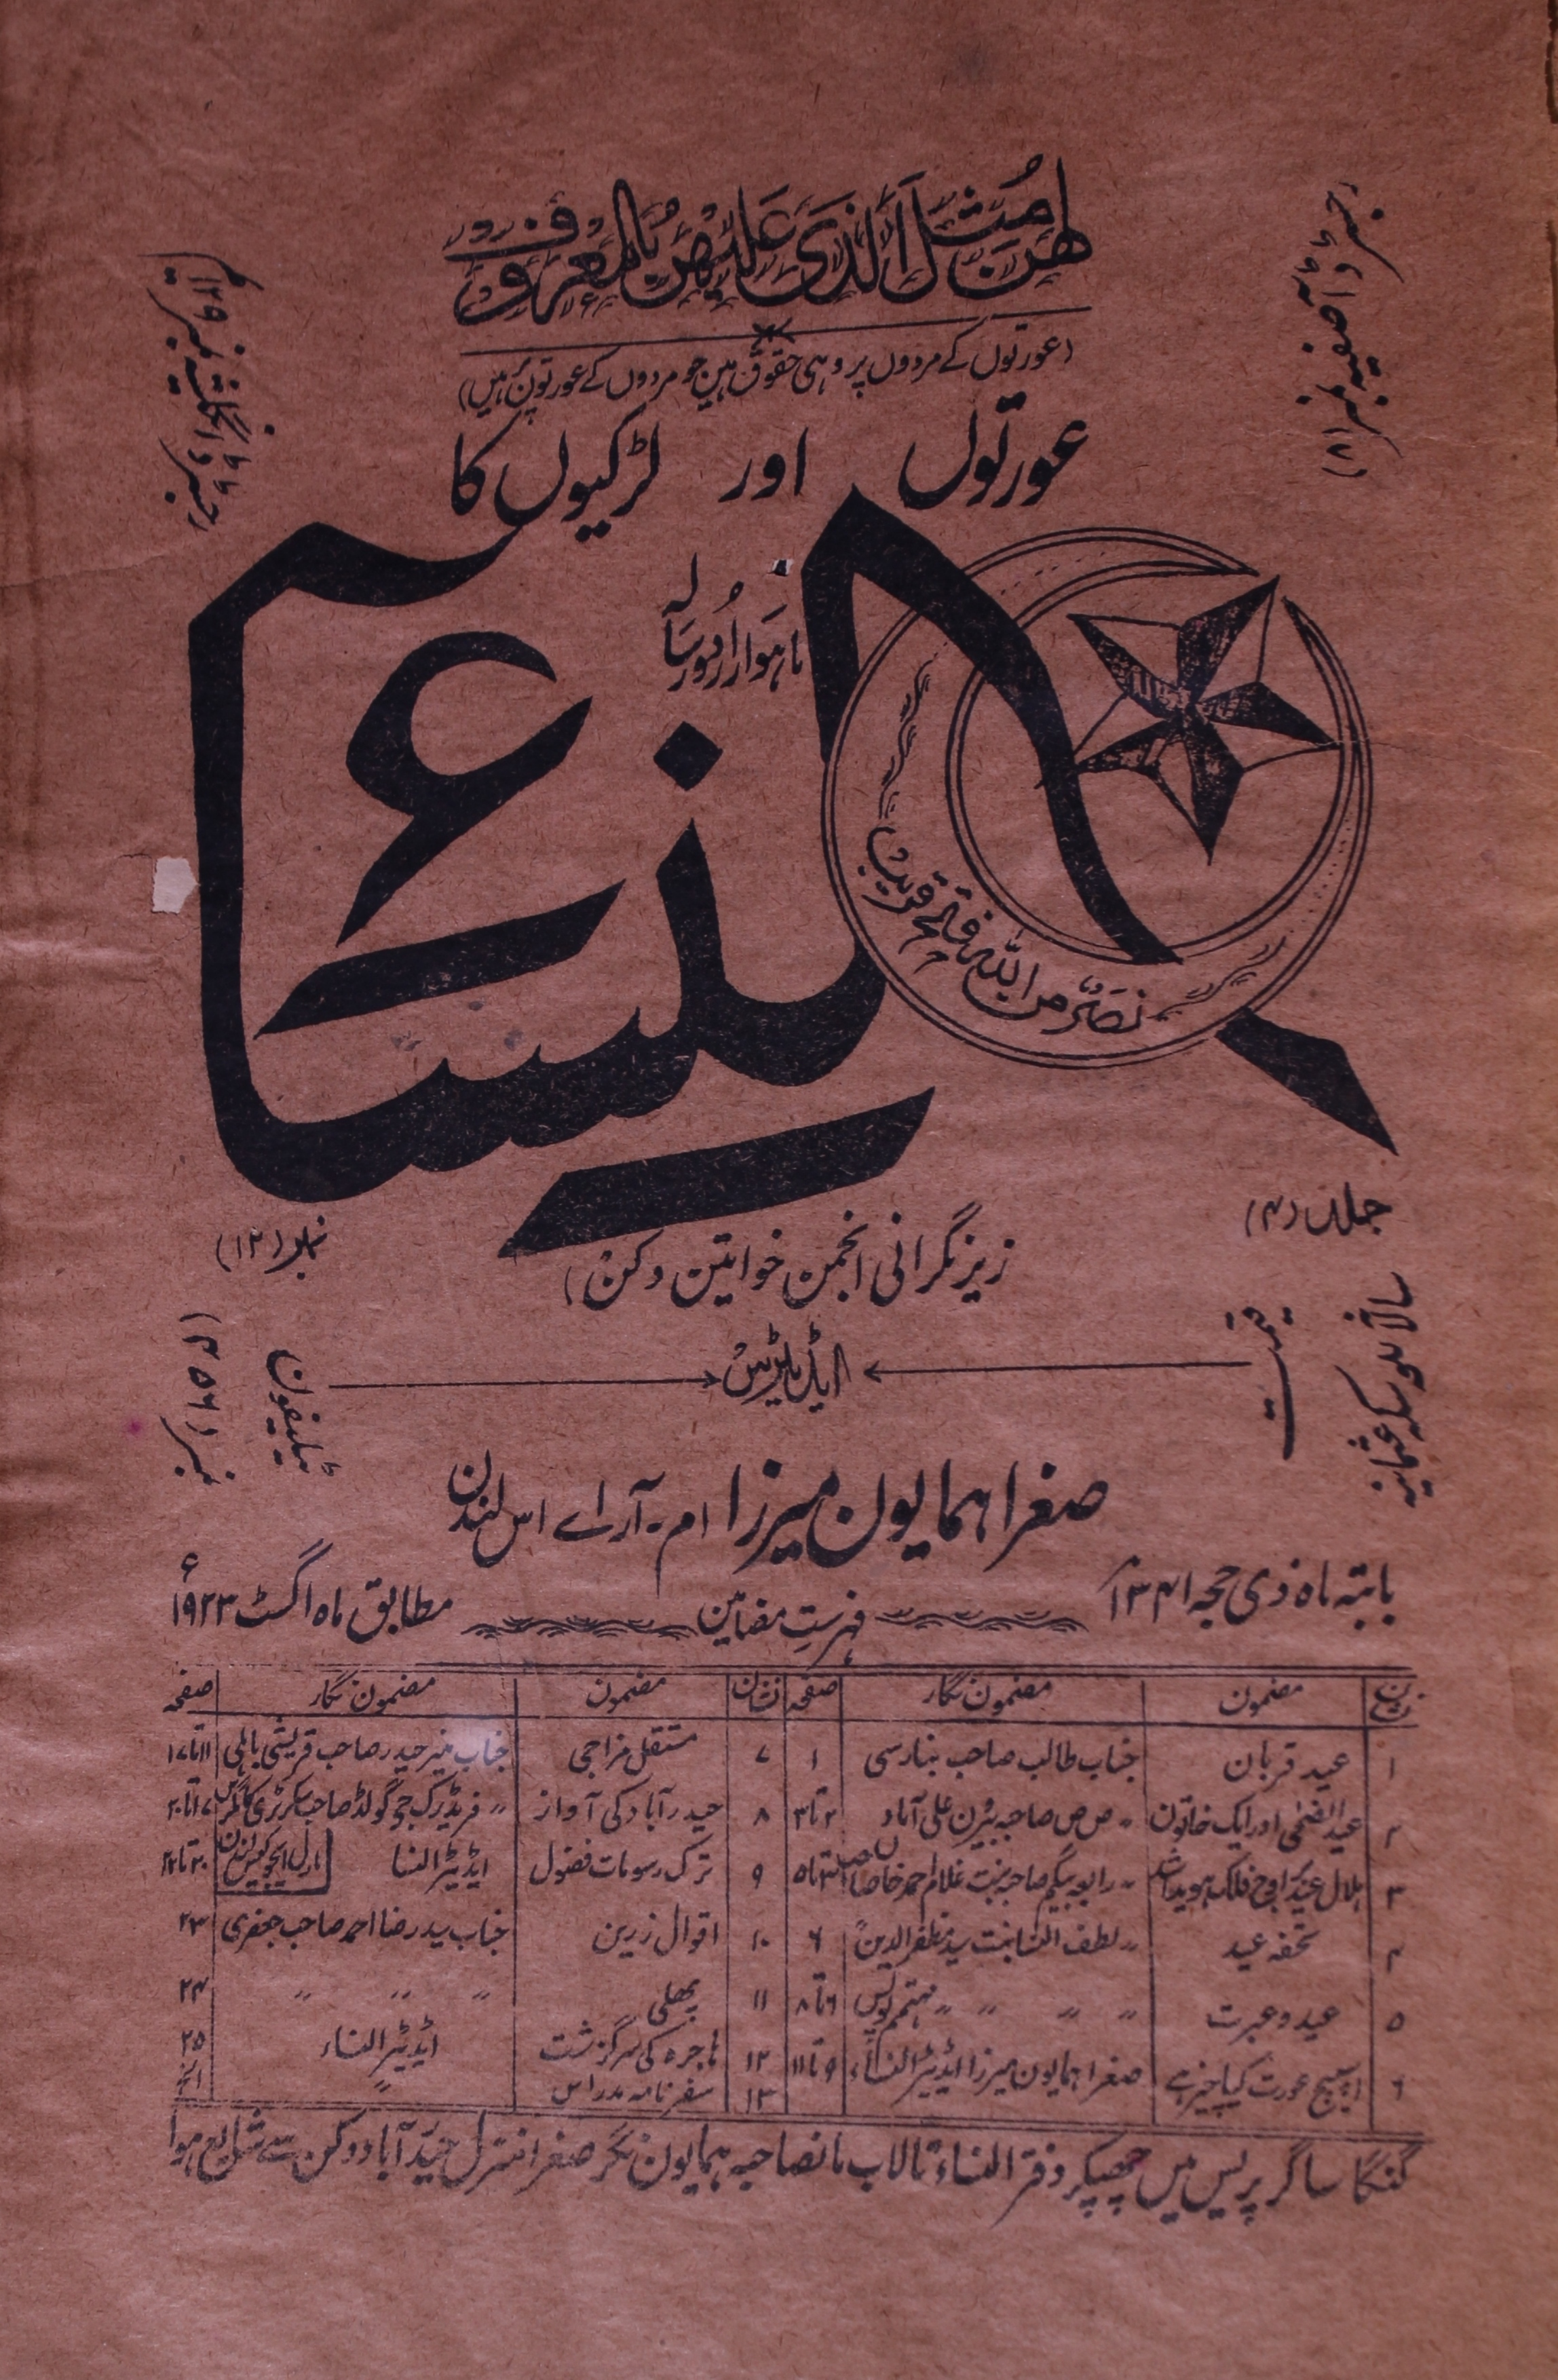 لهن مثل الذی علیهن بالمعروف
(عورتوں کے مردوں پر وہی حقوق ہیں جو مردوں کے عورتوں پر ہیں)
رجسٹرڈ آصفیہ نمبر (۸۱)
عورتوں اور لڑکیوں کا
ماہوار اُردو رسالہ
النساء
نصر من الله فتح قریب
جلد (۴)
نمبر (۱۲)
زیر نگرانی انجمن خواتین دکن)
قیمت
سالانہ سکہ عثمانیہ
ایڈیٹرس
ٹیلیفون
نمبر (۳۵۶)
صغرا ہمایون میرزا ام-آر اے اس لندن
بابتہ ماہ ذی حجہ ۱۳۴۱
فہرست مضامین
مطابق ماہ اگسٹ ۱۹۲۳ء
نشان مضمون مضمون نگار صفحہ نشان مضمون مضمون نگار صفحہ
۱ عید قربان جناب طالب صاحب بنارسی ۱ ۷ مستقل مزاجی جناب میر حیدر صاحب قریشی ۱۱ تا ۱۷
۲ عید الضحٰی اور ایک خاتون 〃 ص ص صاحبہ بیرن علی آباد ۲ تا ۳ ۸ حیدرآباد کی آواز 〃 فریڈرک جی گولڈ صاحب سکرٹری ۱۷ تا ۲۰
مارل ایجوکیشن لندن
۳ ہلال عید بر اوج فلک ہویدا شد 〃 رابعہ بیگم صاحبہ بنت غلام احمد خاں صاحب ۳ تا ۵ ۹ ترک رسومات فضول ایڈیٹر النسا ۲۰ تا ۲۲
۴ تحفہ عید 〃 لطف النسا بنت سید مظفر الدین ۶ ۱۰ اقوال زرین جناب سید رضا احمد صاحب جعفری ۲۳
۵ عید و عبرت 〃 〃 〃 〃 مہتمم پولیس ۶ تا ۸ ۱۱ پھلی 〃 〃 〃 ۲۴
۶ اسپیچ عورت کیا چیز ہے صغرا ہمایون میرزا ایڈیٹر النساء ۹ تا ۱۱ ۱۲ ہاجرہ کی سرگزشت ایڈیٹر النساء ۲۵
۱۳ سفرنامہ مدراس 〃 الخ
گنگا ساگر پریس میں چھپکر دفتر النساء تالاب مانصاحبہ ہمایون نگر صغرا منزل حیدرآباد دکن سے شایع ہوا